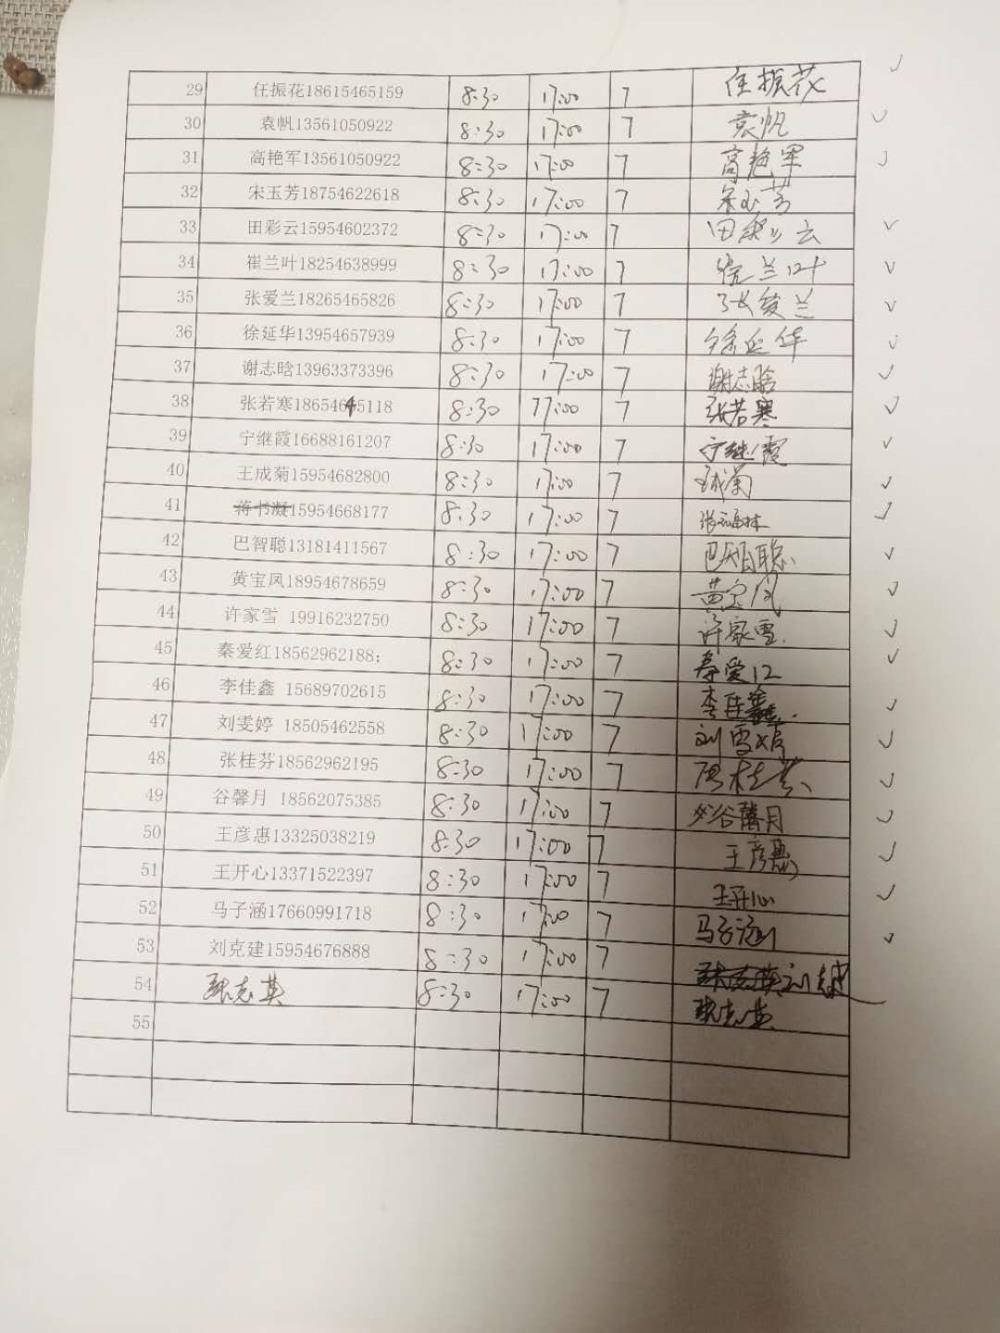 29 任振花18615465159 8:30 17:00 7 任振花
30 袁帆13561050922 8:30 17:00 7 袁帆
31 高艳军13561050922 8:30 17:00 7 高艳军
32 宋玉芳18754622618 8:30 17:00 7 宋玉芳
33 田彩云15954602372 8:30 17:00 7 田彩云
34 崔兰叶18254638999 8:30 17:00 7 崔兰叶
35 张爱兰18265465826 8:30 17:00 7 张爱兰
36 徐延华13954657939 8:30 17:00 7 徐延华
37 谢志晗13963373396 8:30 17:00 7 谢志晗
38 张若寒18654645118 8:30 17:00 7 张若寒
39 宁继霞16688161207 8:30 17:00 7 宁继霞
40 王成菊15954682800 8:30 17:00 7 王成菊
41 蒋书凝15954668177 8:30 17:00 7
42 巴智聪13181411567 8:30 17:00 7 巴智聪
43 黄宝凤18954678659 8:30 17:00 7 黄宝凤
44 许家雪 19916232750 8:30 17:00 7 许家雪
45 秦爱红18562962188; 8:30 17:00 7 秦爱红
46 李佳鑫 15689702615 8:30 17:00 7 李佳鑫
47 刘雯婷 18505462558 8:30 17:00 7 刘雯婷
48 张桂芬18562962195 8:30 17:00 7 张桂芬
49 谷馨月 18562075385 8:30 17:00 7 谷馨月
50 王彦惠13325038219 8:30 17:00 7 王彦惠
51 王开心13371522397 8:30 17:00 7 王开心
52 马子涵17660991718 8:30 17:00 7 马子涵
53 刘克建15954676888 8:30 17:00 7 张志英 刘克建
54 张志英 8:30 17:00 7 张志英
55